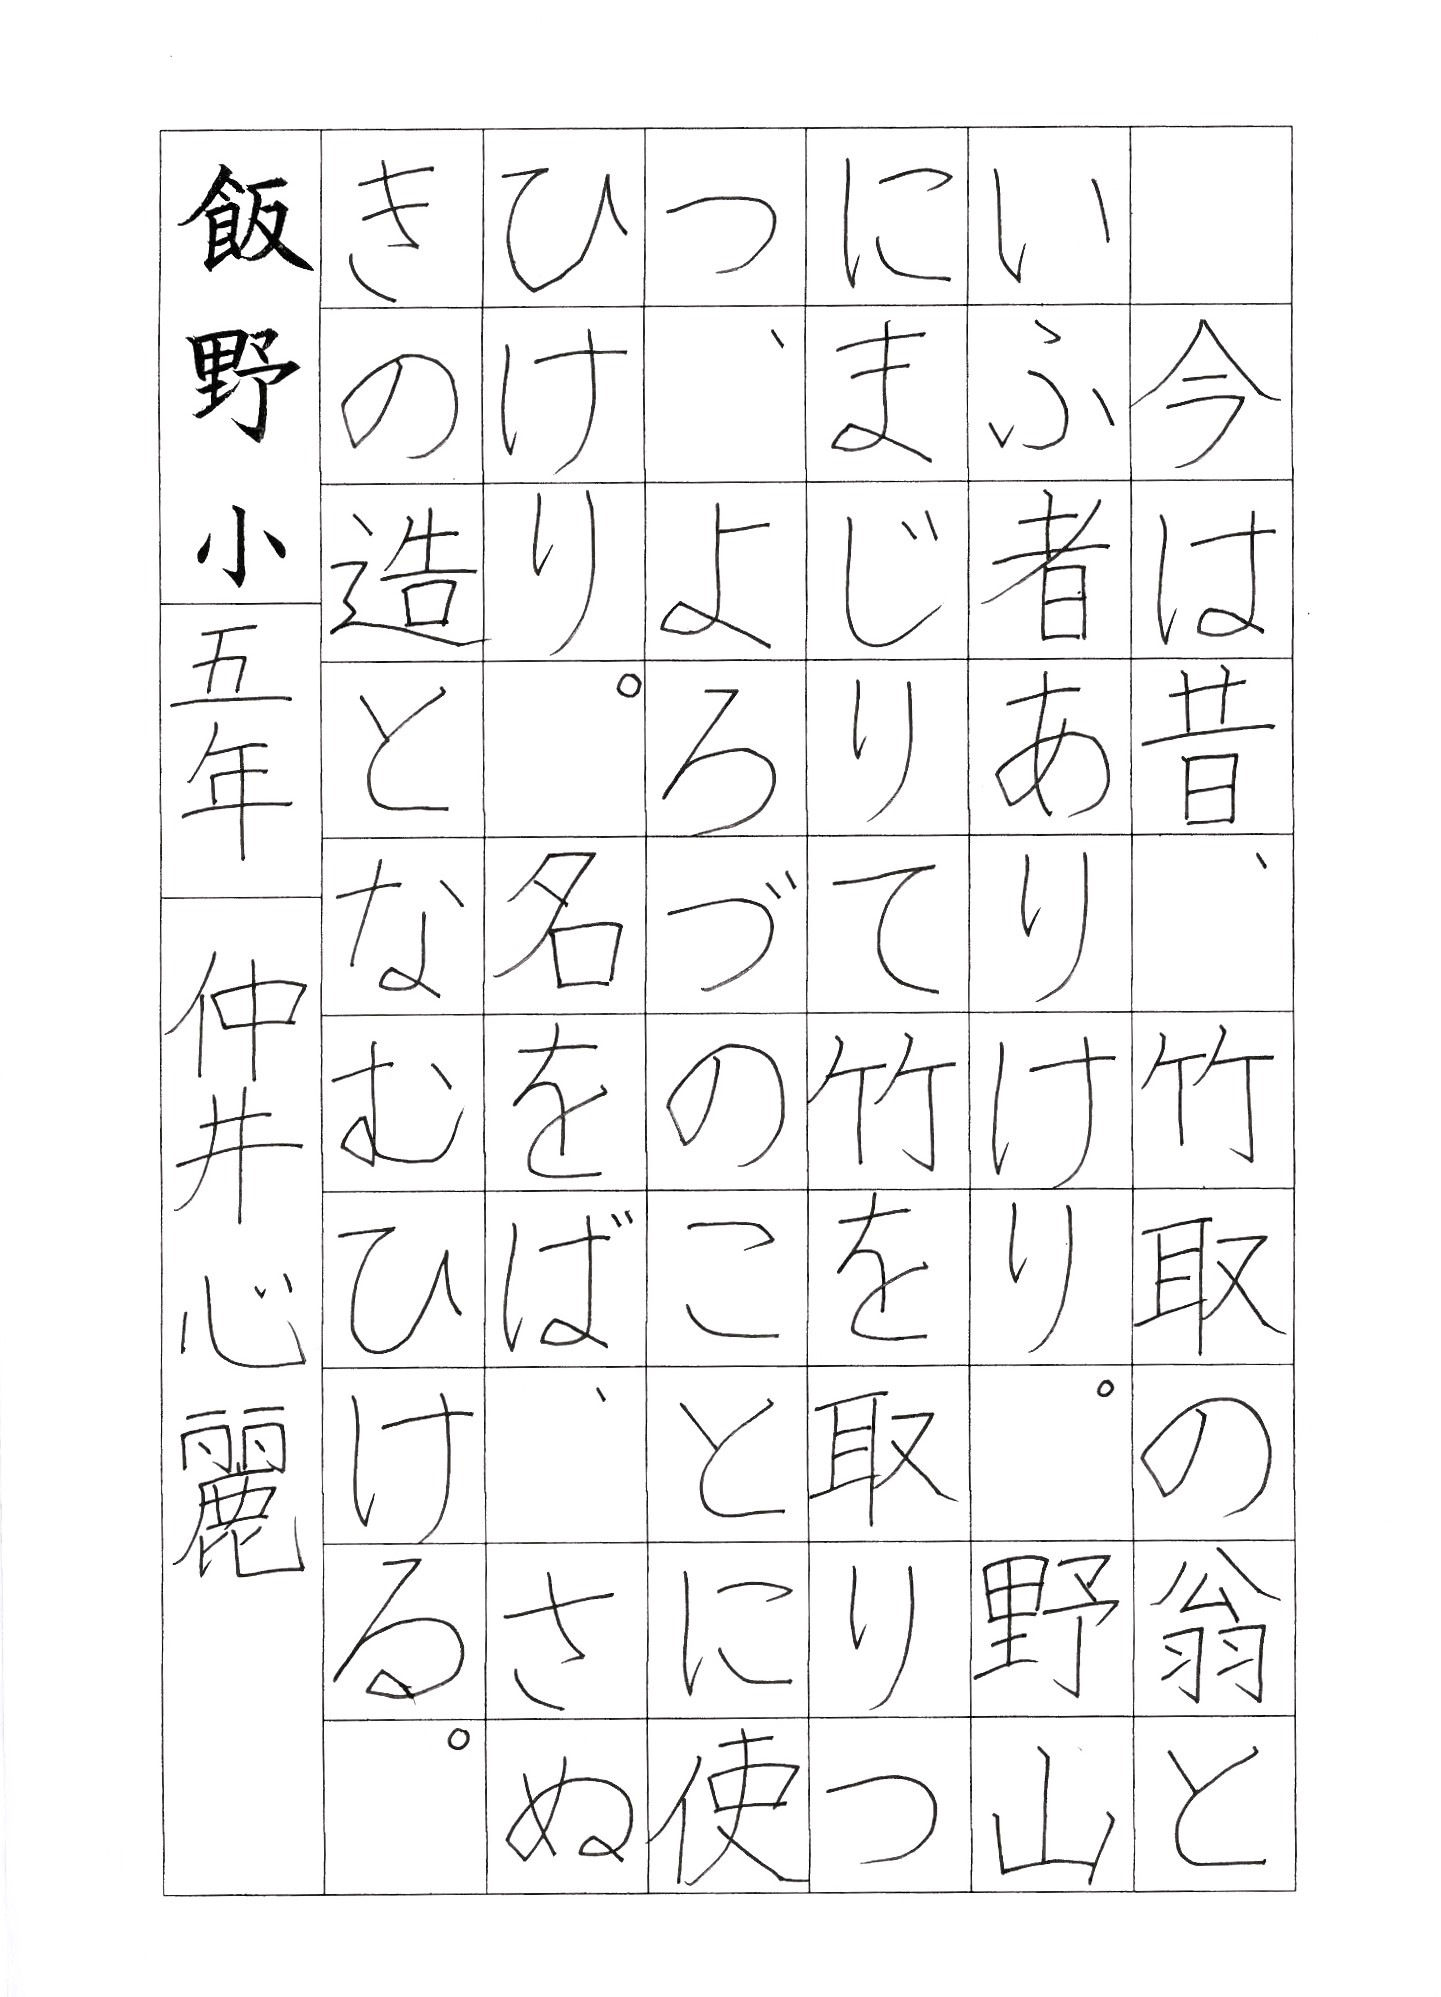 今は昔、竹取の翁と
いふ者ありけり。野山
にまじりて竹を取りつ
つ、よろづのことに使
ひけり。名をば、さぬ
きの造となむひける。
飯野小五年 仲井心麗